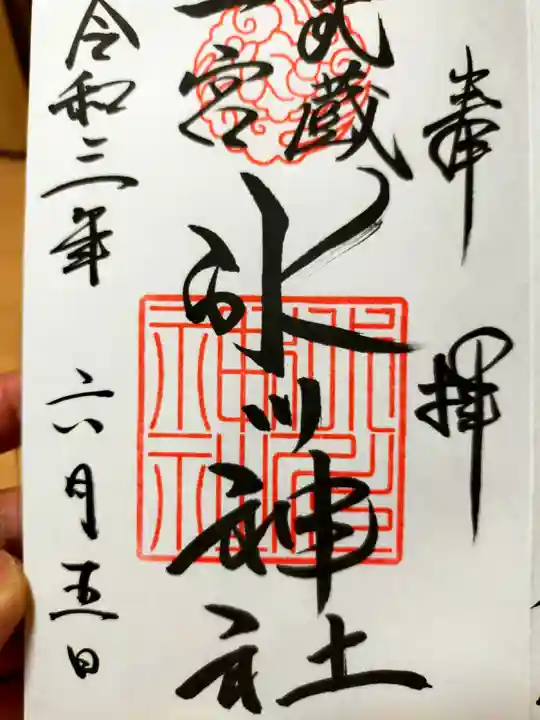 奉拝
武蔵
一宮
氷川神社
令和三年六月五日